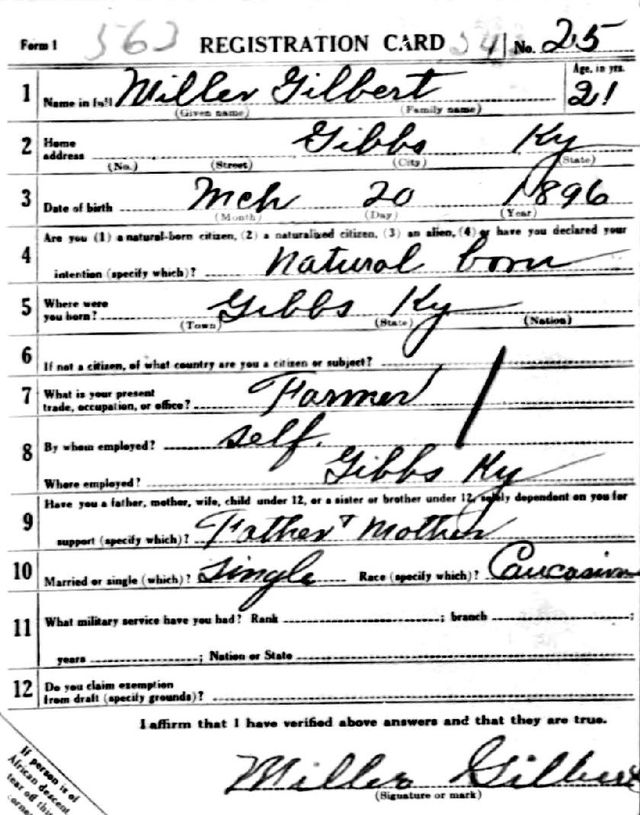 Form 1 563 REGISTRATION CARD No. 25
1 Name in full Miller Gilbert Age, in yrs. 21
(Given name) (Family name)
2 Home address Gibbs Ky
(No.) (Street) (City) (State)
3 Date of birth Mch 20 1896
(Month) (Day) (Year)
4 Are you (1) a natural-born citizen, (2) a naturalized citizen, (3) an alien, (4) or have you declared your
intention (specify which)? Natural born
5 Where were you born? Gibbs Ky
(Town) (State) (Nation)
6 If not a citizen, of what country are you a citizen or subject?
7 What is your present trade, occupation, or office? Farmer
8 By whom employed? self.
Where employed? Gibbs Ky
9 Have you a father, mother, wife, child under 12, or a sister or brother under 12, solely dependent on you for
support (specify which)? Father & Mother
10 Married or single (which)? Single Race (specify which)? Caucasian
11 What military service have you had? Rank ; branch ;
years ; Nation or State
12 Do you claim exemption from draft (specify grounds)?
I affirm that I have verified above answers and that they are true.
Miller Gilbert
(Signature or mark)
If person is of
African descent
tear off this
corner